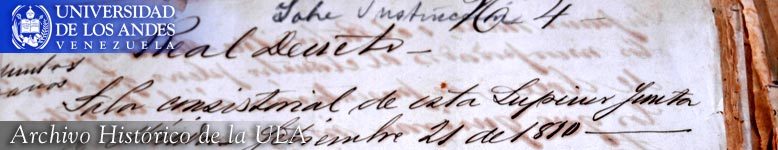 UNIVERSIDAD
DE LOS ANDES
VENEZUELA
Sobre
4
Real Decreto
Sala consistorial de esta Superior Junta
21 de 1810
Archivo Histórico de la ULA